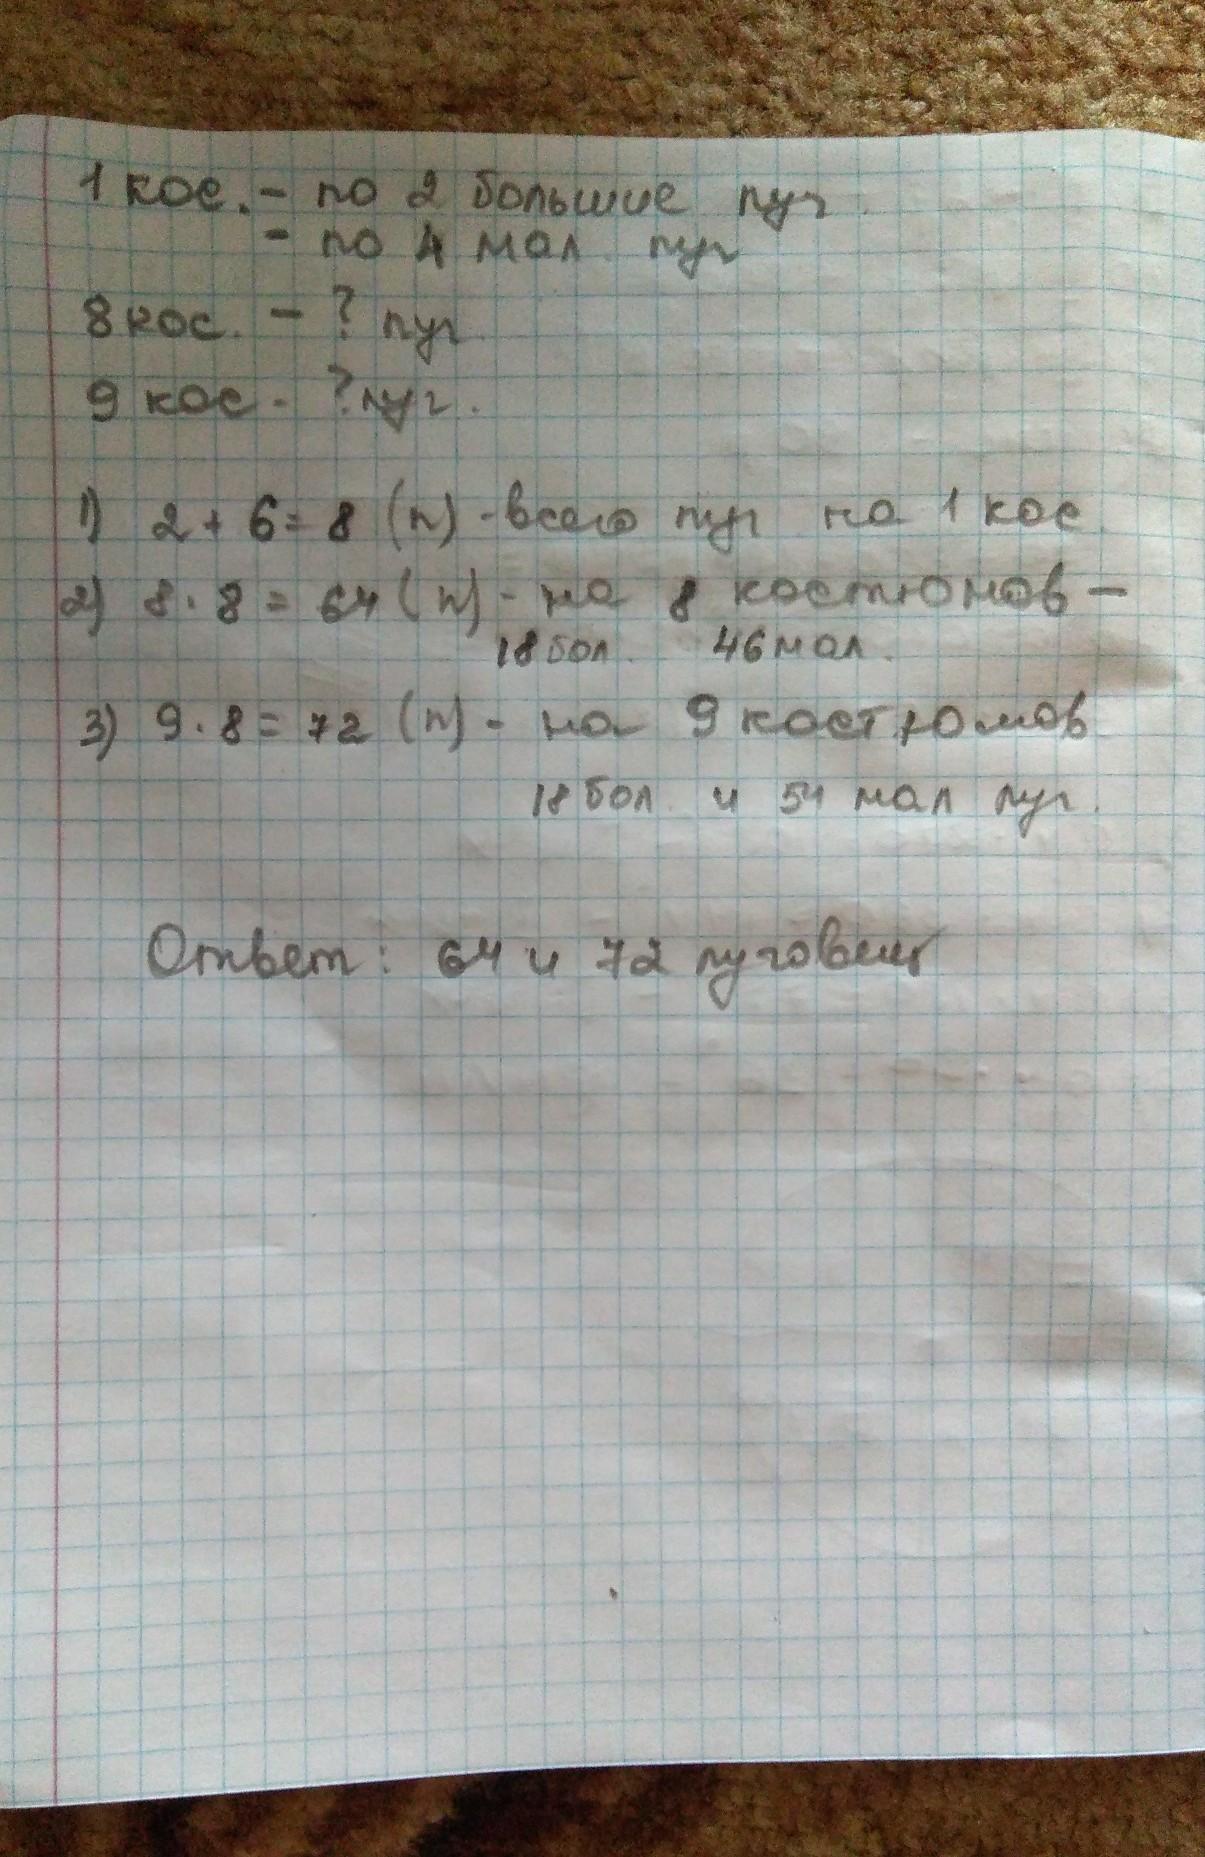 1 кос. - по 2 большие пуг.
- по 4 мал. пуг
8 кос. - ? пуг.
9 кос - ? пуг.
1) 2 + 6 = 8 (п) - всего пуг на 1 кос
2) 8 · 8 = 64 (п) - на 8 костюмов -
18 бол. 46 мал.
3) 9 · 8 = 72 (п) - на 9 костюмов
18 бол. и 54 мал пуг.
Ответ: 64 и 72 пуговиц